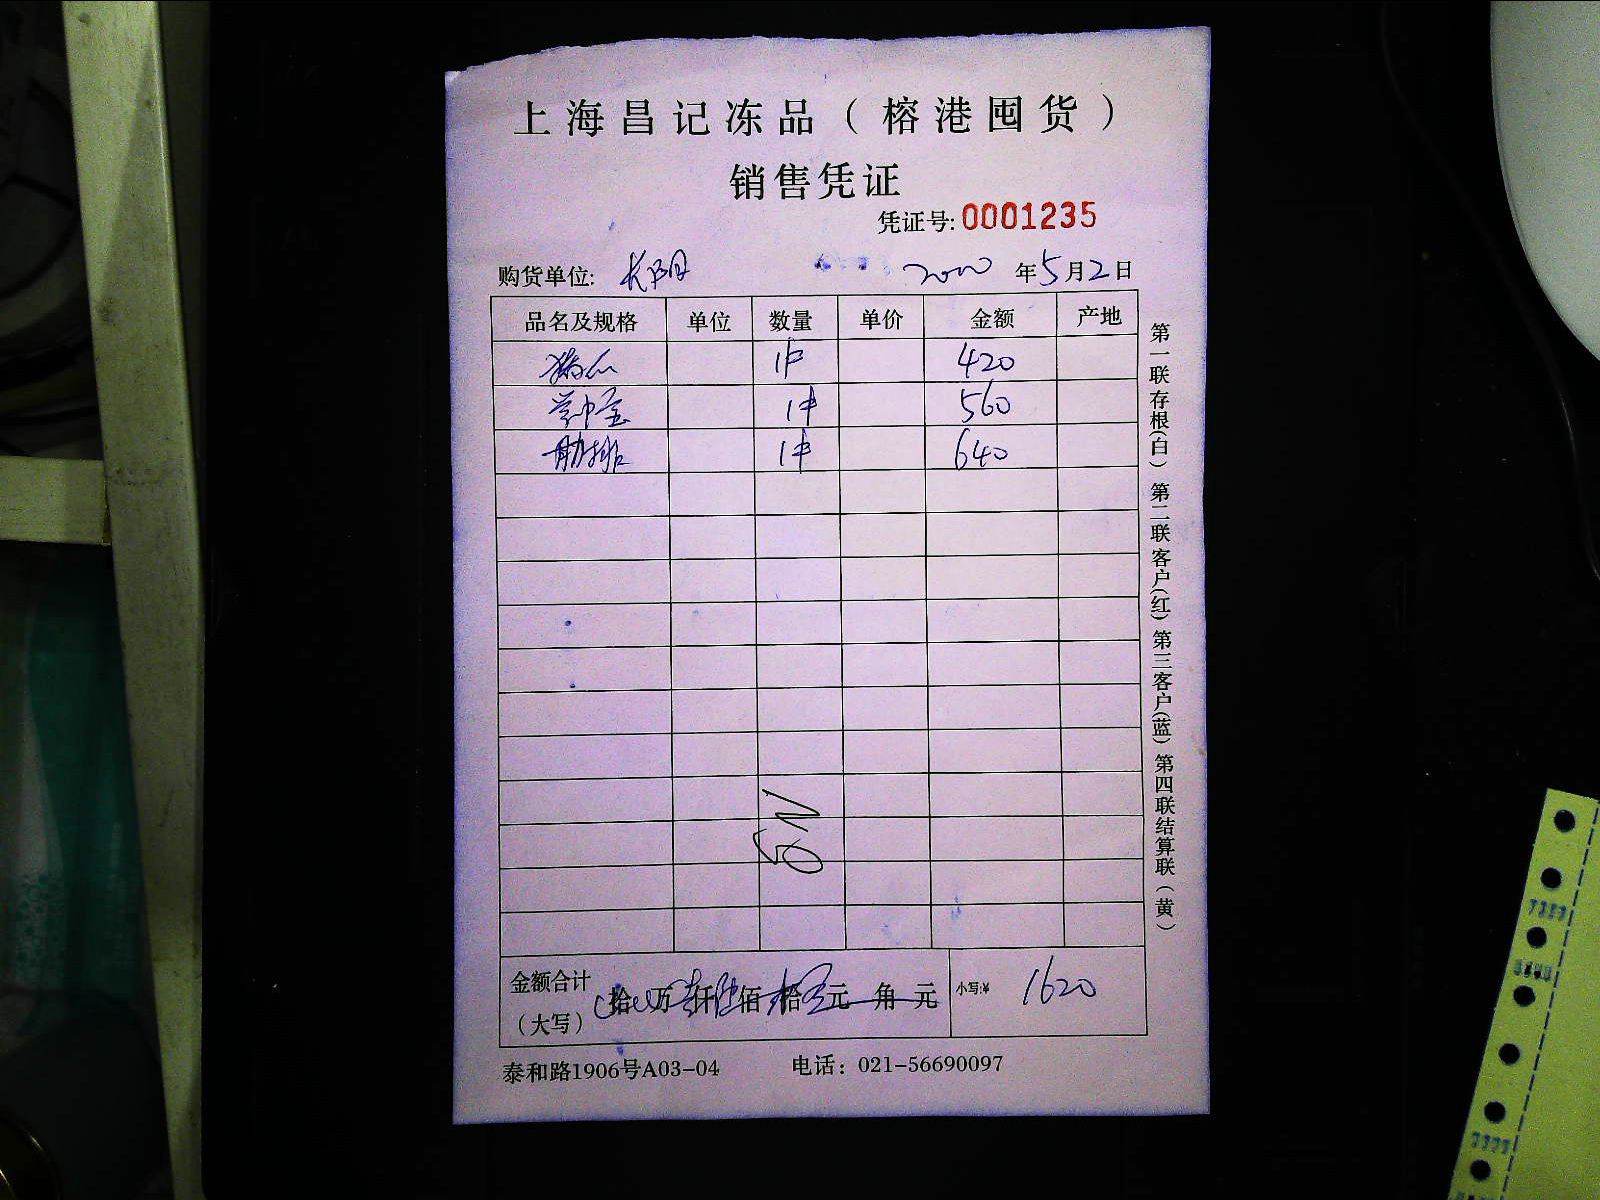 上海昌记冻品（榕港囤货）
销售凭证
凭证号: 0001235
购货单位: 长阳 年5月2日
品名及规格 单位 数量 单价 金额 产地
1件 420
1件 560
肋排 1件 640
金额合计（大写） 拾 万 仟 佰 拾 元 角 元 小写:¥ 1620
泰和路1906号A03-04 电话：021-56690097
第一联存根(白) 第二联客户(红) 第三客户(蓝) 第四联结算联（黄）